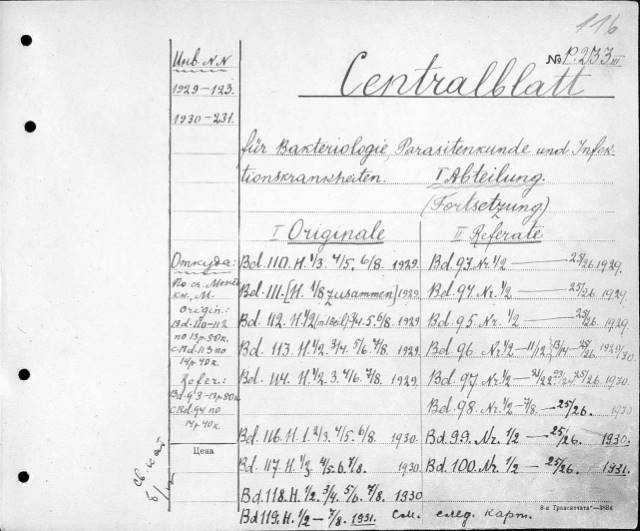 116
№ P.233 III
Инв. NN
Centralblatt
1929-123.
1930-231.
für Bakteriologie, Parasitenkunde und Infek-
tionskrankheiten. I Abteilung.
(Fortsetzung)
I Originale II Referate
Откуда: Bd. 110. H. 1/3. 4/5. 6/8. 1929. Bd. 93. Nr. 1/2 — 25/26. 1929.
По сч. Меж.
кн., М. Bd. 111-[H. 1/8 zusammen] 1929. Bd. 94. Nr. 1/2 — 25/26. 1929.
Origin.:
Bd. 110-112 Bd. 112. H. 1/2 3/4. 5. 6/8. 1929 Bd. 95. Nr. 1/2 — 25/26. 1929.
по 13р. 50к.
с Bd. 113 по Bd. 113. H. 1/2. 3/4. 5/6. 7/8. 1929. Bd. 96 Nr. 1/2 — 11/12 13/14 — 25/26. 1929/30.
14р. 40к.
Refer.: Bd. 114. H. 1/2. 3. 4/6. 7/8. 1929. Bd. 97. Nr. 1/2 — 21/22 23/24. 25/26. 1930.
Bd. 93-13р. 50к
с Bd. 94 по Bd. 98. Nr. 1/2 - 7/8. — 25/26. 1930
14р. 40к.
Bd. 116. H. 1. 2/3. 4/5. 6/8. 1930. Bd. 99. Nr. 1/2 — 25/26. 1930.
Цена
Bd. 117. H. 1/3. 4/5. 6. 7/8. 1930. Bd. 100. Nr. 1/2 — 25/26. 1931.
Bd. 118. H. 1/2. 3/4. 5/6. 7/8. 1930
Bd. 119. H. 1/2 — 7/8. 1931. см. след. карт.
8-я "Транспечать"—3884